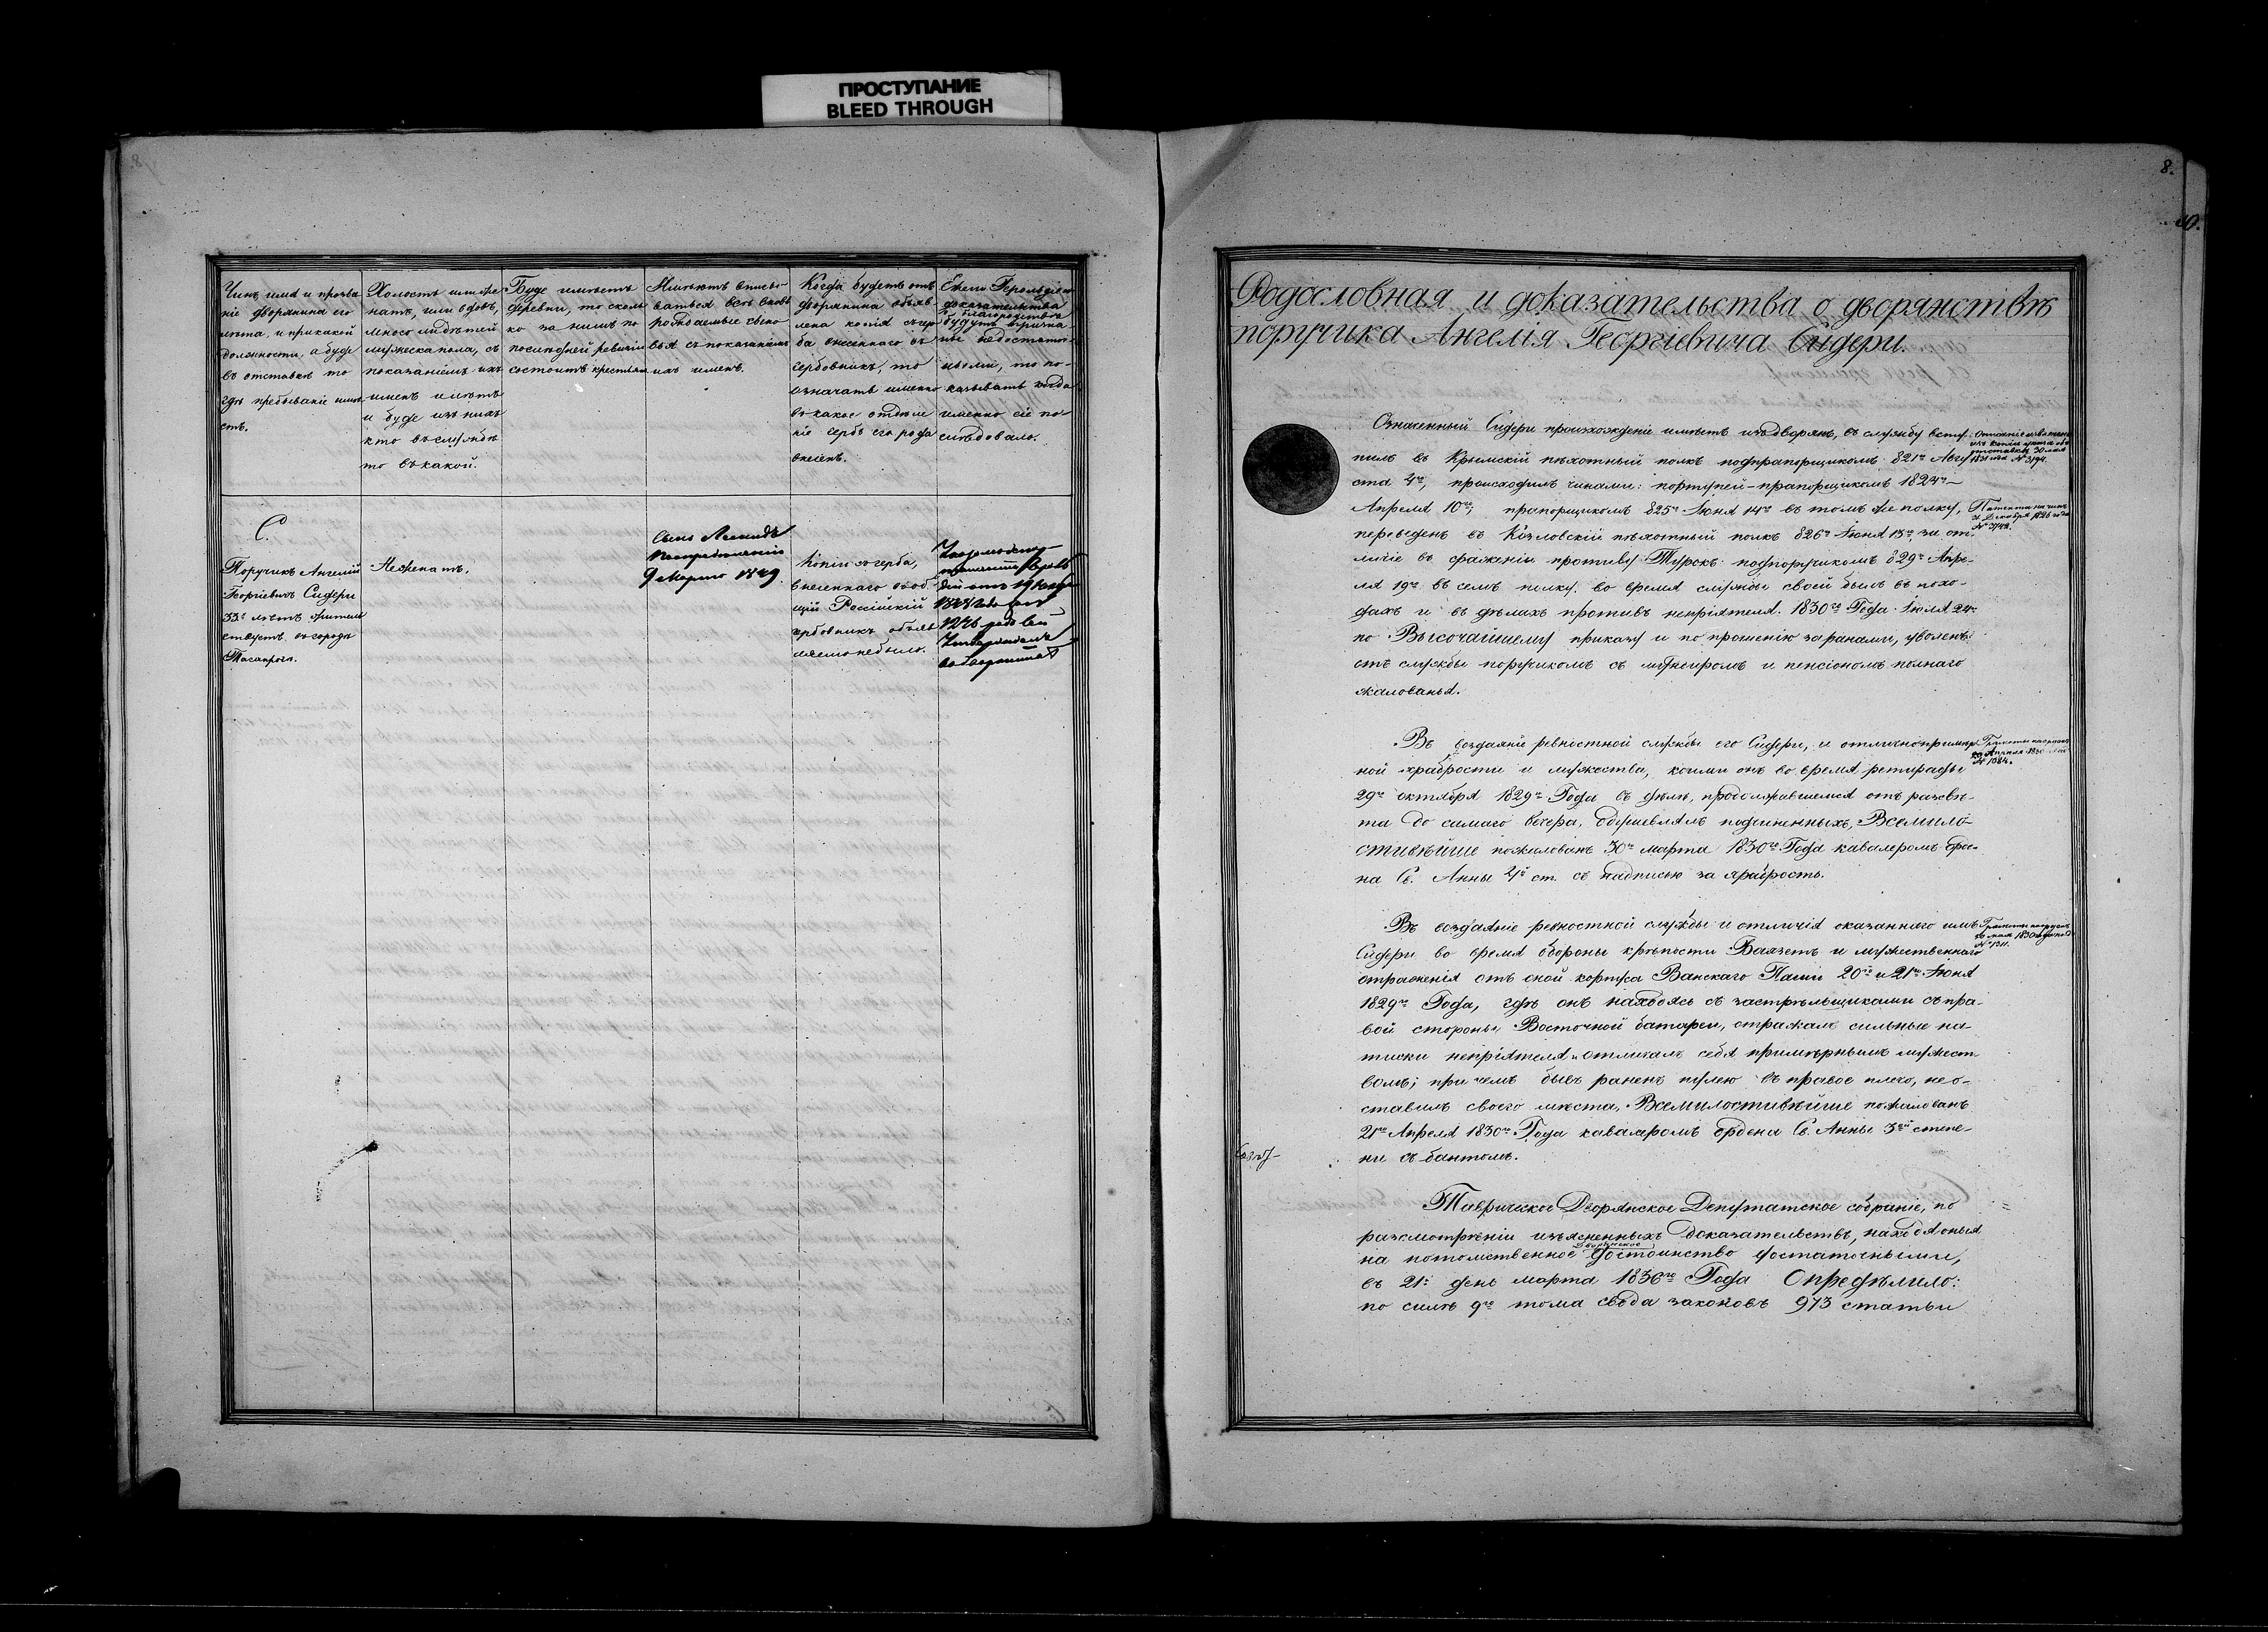 ПРОСТУПАНИЕ
BLEED THROUGH
Чинъ имя и прозва
ніе дворянина его
лѣта, и при какой
должности, а буде
въ отставкѣ то
гдѣ пребываніе имѣ
етъ.
Холостъ или же
натъ, или вдовъ,
много ли дѣтей
мужеска пола, съ
показаніемъ ихъ
именъ и лѣтъ
и буде изъ нихъ
кто въ службѣ
то въ какой.
Буде имѣетъ
деревни, то сколь
ко за нимъ по
послѣдней ревизіи
состоитъ крестьян
Имѣютъ вписы
ваться всѣ вновь
рождаемые сыно
вья съ показаніемъ
ихъ именъ.
Когда будетъ отъ
дворянина объяв
лена копія съ гер
ба внесеннаго въ
гербовникъ, то
означать именно
въ какое отдѣле
ніе гербъ его рода
внесенъ.
Ежели Герольдіею
доказательства
о благородствѣ
будутъ призна
ны недостаточ
ными, то по
казывать когда
именно сіе по
слѣдовало.
С.
Поручикъ Ангелій
Георгіевичъ Сидери
33х лѣтъ жительст
ствуетъ въ городѣ
Таганрогѣ.
Неженатъ.
Сынъ
9 Марта 1849
Копіи съ герба,
внесеннаго въ об
щій Россійскій
гербовникъ объяв
ляемо небыло.
8.
10.
Родословная и доказательства о дворянствѣ
поручика Ангелія Георгіевича Сидери.
Означенный Сидери происхожденіе имѣетъ изъ дворянъ, въ службу всту-
пилъ въ Крымскій пѣхотный полкъ подпрапорщикомъ 821го Авгу-
ста 4го, происходилъ чинами: портупей-прапорщикомъ 1824го
Апрѣля 10го, прапорщикомъ 825го Іюня 14го въ томъ же полку,
переведенъ въ Козловскій пѣхотный полкъ 826го Іюня 13го, за от-
личіе въ сраженіи противу Турокъ подпоручикомъ 829го Апрѣ-
ля 19го въ семъ полку. во время службы своей былъ въ похо-
дахъ и въ дѣлахъ противъ непріятеля. 1830го Года Іюля 24го
по Высочайшему приказу и по прошенію за ранами, уволенъ
отъ службы поручикомъ съ мундиромъ и пенсіономъ полнаго
жалованья.
№ 3194.
Въ воздаяніе ревностной службы его Сидери, и отличнопримѣр-
ной храбрости и мужества, коими онъ во время ретирады
29го октября 1829го Года въ дѣлѣ, продолжавшемся отъ разсвѣ-
та до самаго вечера, одушевлялъ подчиненныхъ, Всемило-
стивѣйше пожалованъ 30го марта 1830го Года кавалеромъ орде-
на Св. Анны 4й ст. съ надписью за храбрость.
Въ воздаяніе ревностной службы и отличія оказаннаго имъ
Сидери во время обороны крѣпости Баязетъ и мужественнаго
отраженія отъ оной корпуса Ванскаго Паши 20го и 21го Іюня
1829го Года, гдѣ онъ находясь съ застрѣльщиками съ пра-
вой стороны Восточной батареи, отражалъ сильные на-
тиски непріятеля и отличалъ себя примѣрнымъ мужест-
вомъ; при чемъ бывъ раненъ пулею въ правое плечо, нео-
ставилъ своего мѣста, Всемилостивѣйше пожалованъ
21го Апрѣля 1830го Года кавалеромъ ордена Св. Анны 3ей степе-
ни съ бантомъ.
Таврическое Дворянское Депутатское собраніе, по
разсмотрѣніи изъясненныхъ доказательствъ, находя оныя
на потомственное Дворянское достоинство достаточными,
въ 21й день марта 1836го Года Опредѣлило:
по силѣ 9го тома свода законовъ 973 статьи